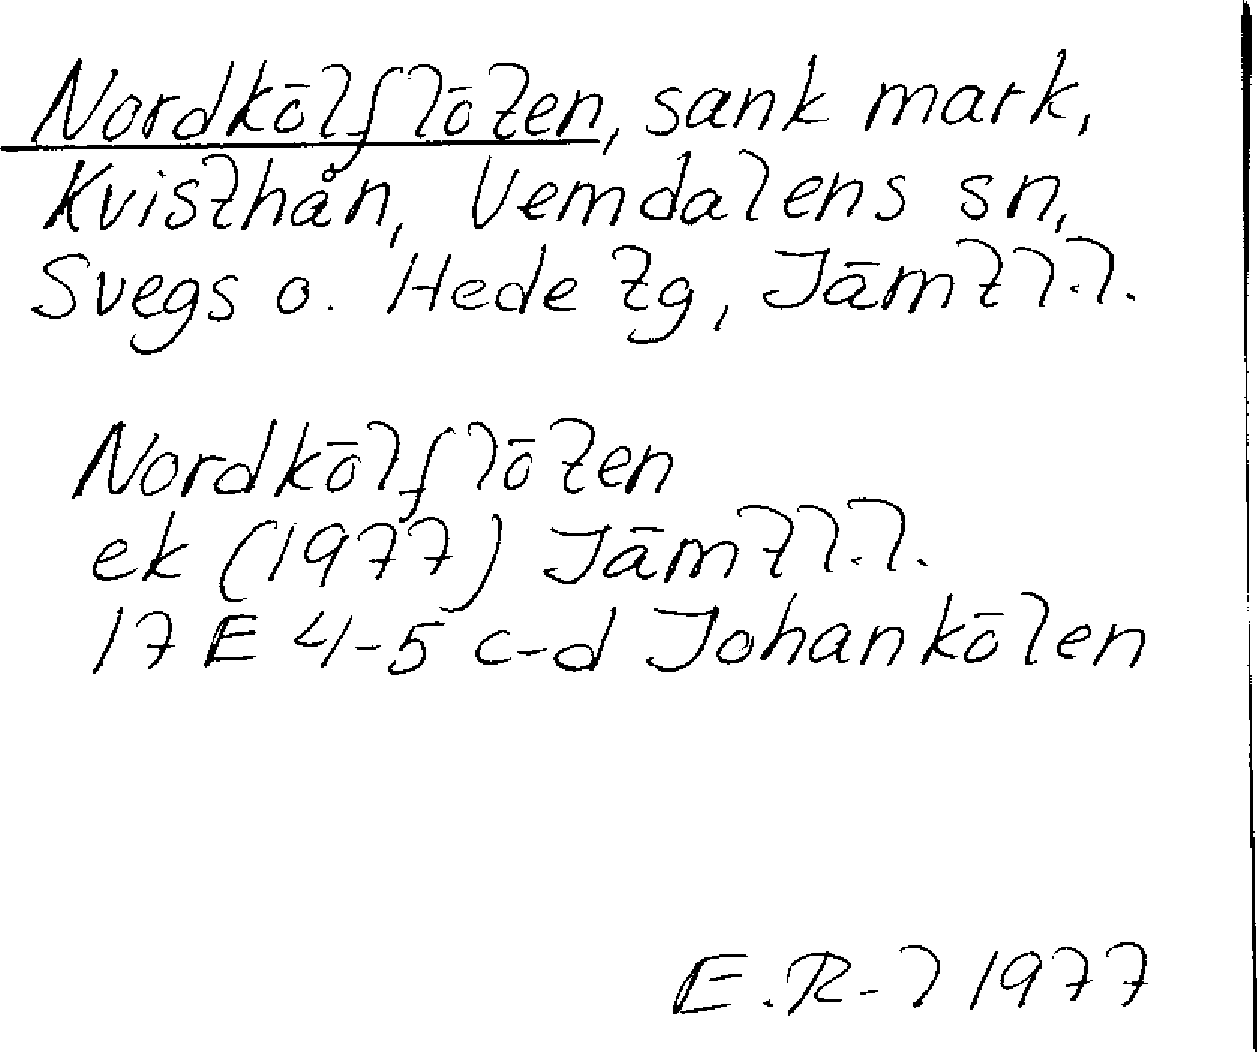 Nordkölflöten, sank mark,
Kvisthån, Vemdalens sn,
Svegs o. Hede tg, Jämtl.l.
Nordkölflöten
ek (1977) Jämtl.l.
17 E 4-5 c-d Johankölen
E.R-l 1977